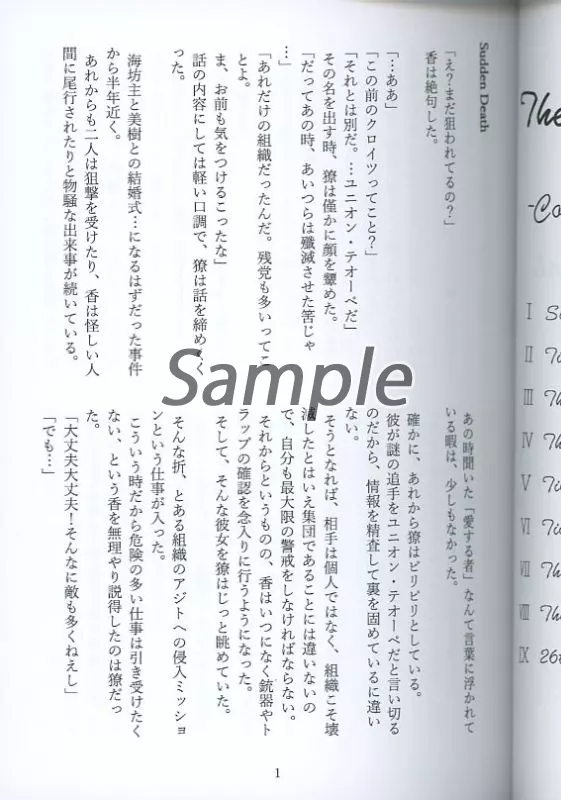 Sudden Death
「え？まだ狙われてるの？」
香は絶句した。
「…ああ」
「この前のクロイツってこと？」
「それとは別だ。…ユニオン・テオーペだ」
その名を出す時、獠は僅かに顔を顰めた。
「だってあの時、あいつらは殲滅させた筈じゃ
…」
「あれだけの組織だったんだ。残党も多いってこ
とよ。
ま、お前も気をつけるこったな」
話の内容にしては軽い口調で、獠は話を締めく
った。
海坊主と美樹との結婚式…になるはずだった事件
から半年近く。
あれからも二人は狙撃を受けたり、香は怪しい人
間に尾行されたりと物騒な出来事が続いている。
あの時聞いた「愛する者」なんて言葉に浮かれて
いる暇は、少しもなかった。
確かに、あれから獠はピリピリとしている。
彼が謎の追手をユニオン・テオーペだと言い切る
のだから、情報を精査して裏を固めているに違い
ない。
そうとなれば、相手は個人ではなく、組織こそ壊
滅したとはいえ集団であることには違いないの
で、自分も最大限の警戒をしなければならない。
それからというものの、香はいつになく銃器やト
ラップの確認を念入りに行うようになった。
そして、そんな彼女を獠はじっと眺めていた。
そんな折、とある組織のアジトへの侵入ミッショ
ンという仕事が入った。
こういう時だから危険の多い仕事は引き受けたく
ない、という香を無理やり説得したのは獠だっ
た。
「大丈夫大丈夫！そんなに敵も多くねえし」
「でも…」
1
The
-Co
I S
II Ti
III Th
IV Th
V Ti
VI Ti
VII Th
VIII Th
IX 26t
Sample